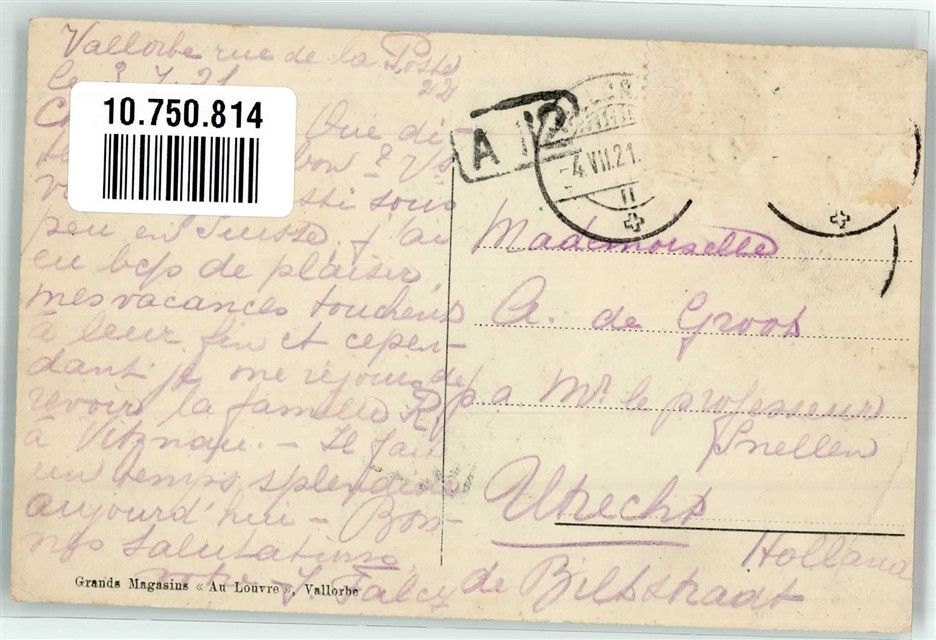 Vallorbe rue de la Poste
22
le 3.7.21
10.750.814
Que di-
bon ? Vs
sous
peu en Suisse. J'ai
eu bcp de plaisir,
mes vacances touchent
à leur fin et cepen-
dant je me réjouis de
revoir la famille R.
à Vitznau. - Il fait
un temps splendide
aujourd'hui - Bon-
nes salutations
votre J. Falcy
Grands Magasins « Au Louvre », Vallorbe
A
-4.VII.21.
Mademoiselle
A. de Groot
p.a. Mr. le professeur
Snellen
Utrecht
Holland
de Biltstraat